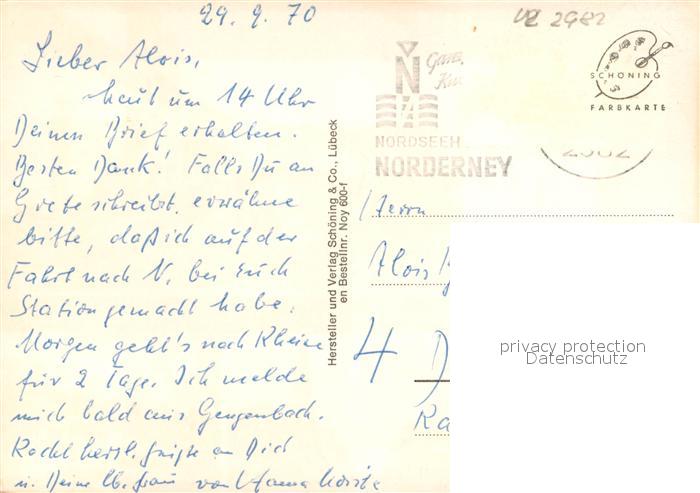 29.9.70
Lieber Alois,
heut um 14 Uhr
Deinen Brief erhalten.
Besten Dank! Falls Du an
Grete schreibst, erwähne
bitte, daß ich auf der
Fahrt nach N. bei Euch
Station gemacht habe.
Morgen geht's nach Rheine
für 2 Tage. Ich melde
mich bald aus Gengenbach.
Recht herzl. Grüße an Dich
u. Deine lb. Frau von
Hersteller und Verlag Schöning & Co., Lübeck
en Bestellnr. Noy 600-f
VZ 2982
N
Ganz
Kur
NORDSEEH
NORDERNEY
2982
SCHÖNING
FARBKARTE
Herrn
Alois
4 D
Ra
privacy protection
Datenschutz